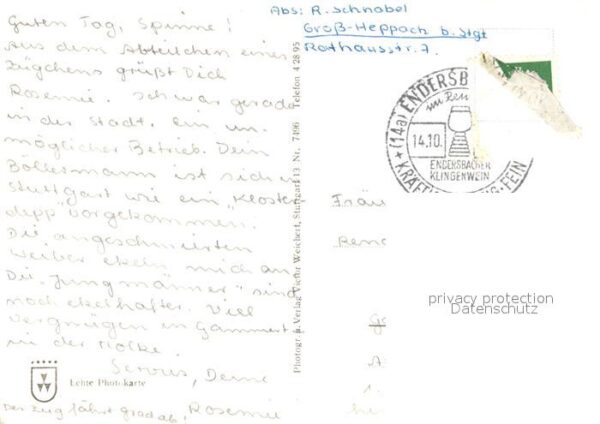 Guten Tag, Spinne!
Aus dem Abteilchen eines
Zügchens grüßt Dich
Rosemie. Ich war gerade
in der Stadt. Ein un-
möglicher Betrieb. Dein
Böllesmann ist sich in
Stuttgart wie ein "Kloster-
depp" vorgekommen.
Die angeschmierten
Weiber ekeln mich an
Die "Jungmänner" sind
noch ekelhafter. Viel
Vergnügen in Gammert
in der Molke.
Servus, Deine
Rosemie
Der Zug fährt grad ab.
Echte Photokarte
Photogr. u. Verlag Victor Weichert, Stuttgart 13 Nr. 7496 Telefon 4 28 95
Abs: R. Schnabel
Groß-Heppach b. Stgt
Rathausstr. 7.
(14a) ENDERSB
im Rem
14.10.
ENDERSBACHER
KLINGENWEIN
KRÄFTIG FEIN
Fräu
Rena
privacy protection
Datenschutz